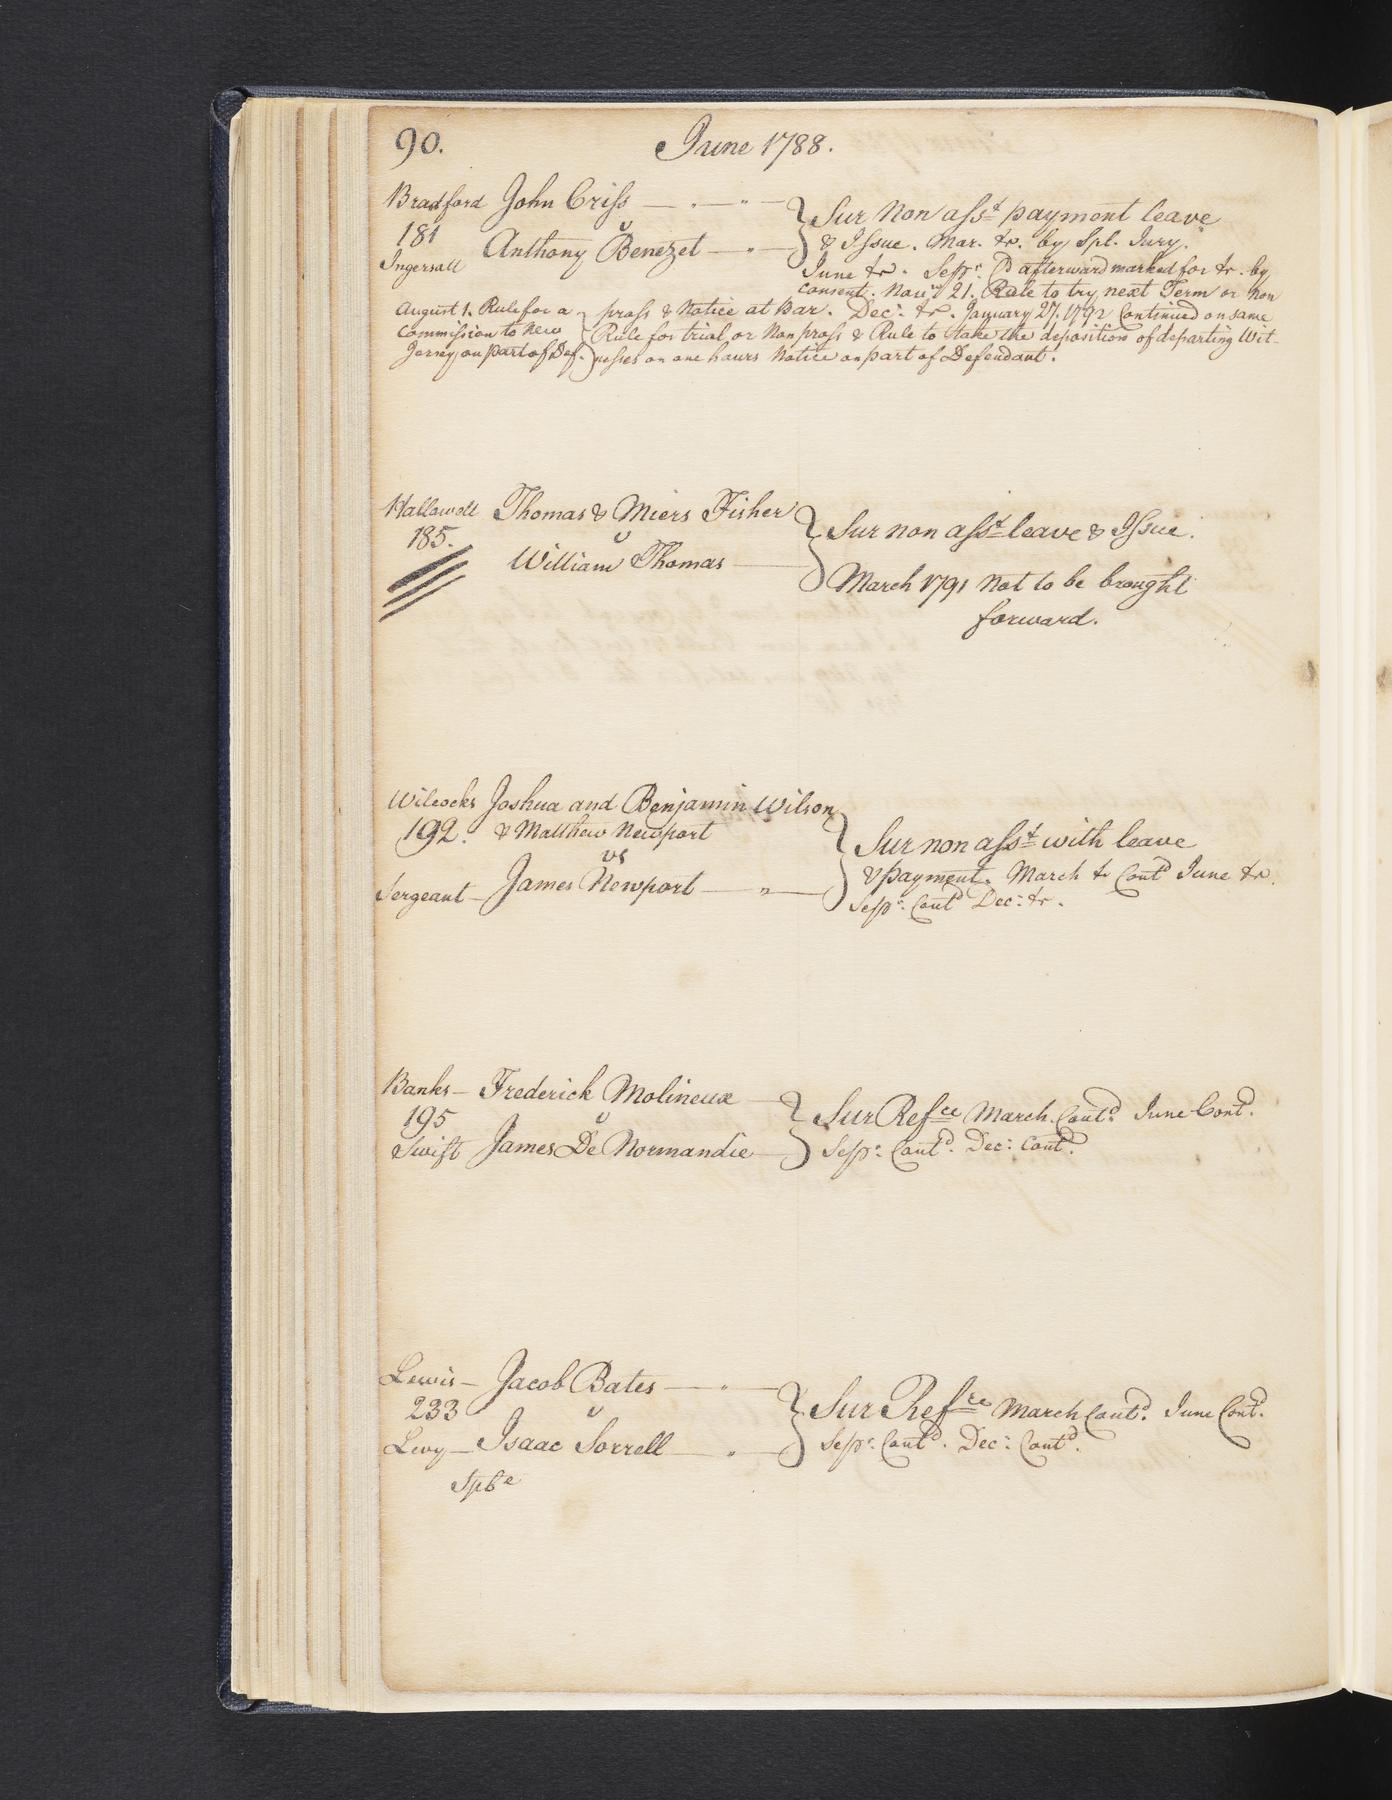 90. June 1788.
Bradford John Criss
v
181
Anthony Benezet
Ingersoll
Sur Non asst payment leave
& Issue. Mar. tr. by Spl. Jury.
June tr. Sepr. afterward marked for tr. by
consent. Novr 21. Rule to try next Term or Non
pross & Notice at Bar. Dec: tr. January 27. 1792 Continued on same
Rule for trial or Non pross & Rule to take the deposition of departing Wit-
nesses on one hours Notice on part of Defendant.
August 1. Rule for a
Commission to New
Jersey on part of Def.
Hallowell Thomas & Miers Fisher
185. v
William Thomas
Sur non asst leave & Issue.
March 1791 Not to be brought
forward.
Wilcocks Joshua and Benjamin Wilson
192. & Matthew Newport
vs
Sergeant James Newport
Sur non asst with leave
& payment. March tr Contd June tr.
Sepr: Contd Dec: tr.
Banks Frederick Molineux
195 v
Swift James De Normandie
Sur Refce March. Contd. June Contd.
Sepr: Contd. Dec: Contd.
Lewis Jacob Bates
233 v
Levy Isaac Sorrell
Sur Refre March Contd. June Contd.
Sepr: Contd. Dec: Contd.